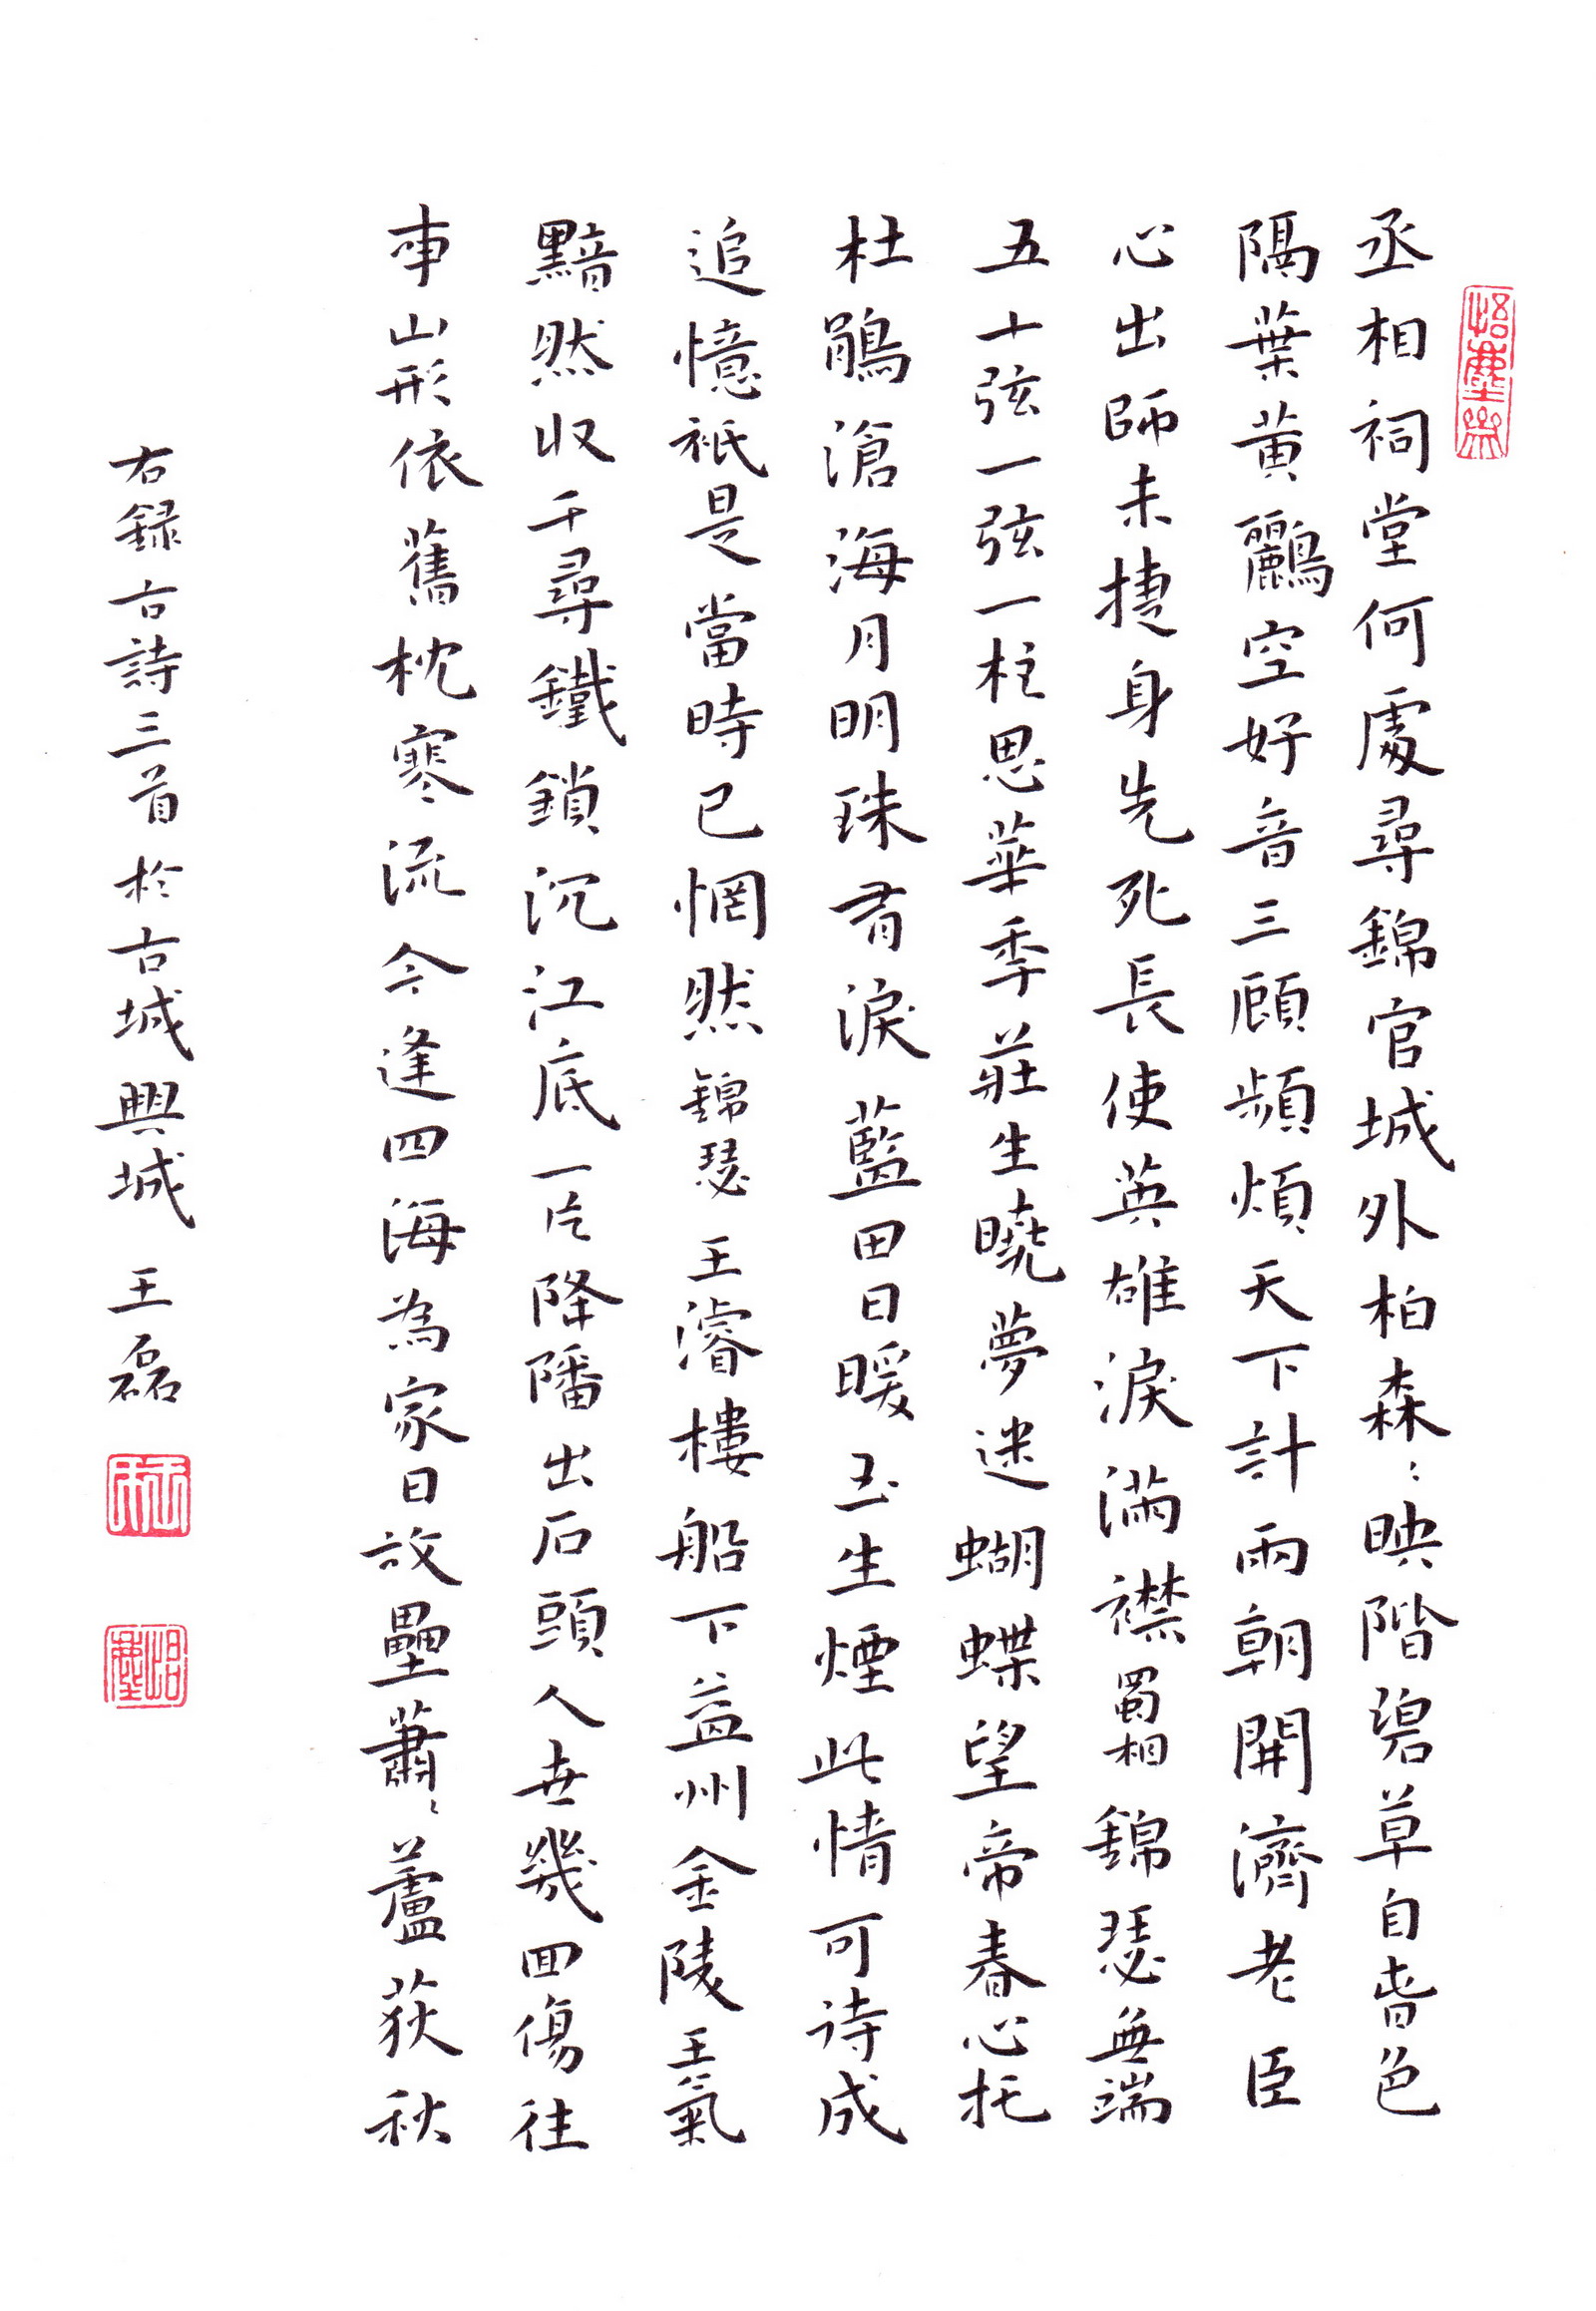 悟塵齋
丞相祠堂何處尋錦官城外柏森〻映階碧草自春色
隔葉黃鸝空好音三顧頻煩天下計兩朝開濟老臣
心出師未捷身先死長使英雄淚滿襟蜀相錦瑟無端
五十弦一弦一柱思華季莊生曉夢迷蝴蝶望帝春心托
杜鵑滄海月明珠有淚藍田日暖玉生煙此情可待成
追憶衹是當時已惘然錦瑟王濬樓船下益州金陵王氣
黯然收千尋鐵鎖沉江底一片降旛出石頭人世幾回傷往
事山形依舊枕寒流今逢四海為家日故壘蕭〻蘆荻秋
右録古詩三首於古城興城王磊
悟塵